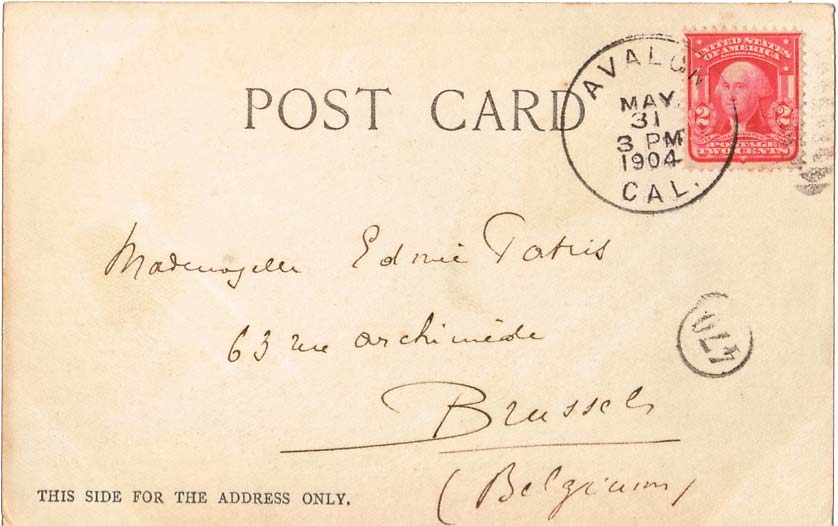 POST CARD
AVALON
MAY
31
3 PM
1904
CAL.
UNITED STATES
OF AMERICA
2 2
POSTAGE
TWO CENTS
Mademoiselle
63 rue Archimède
Brussels
(Belgium)
470
THIS SIDE FOR THE ADDRESS ONLY.